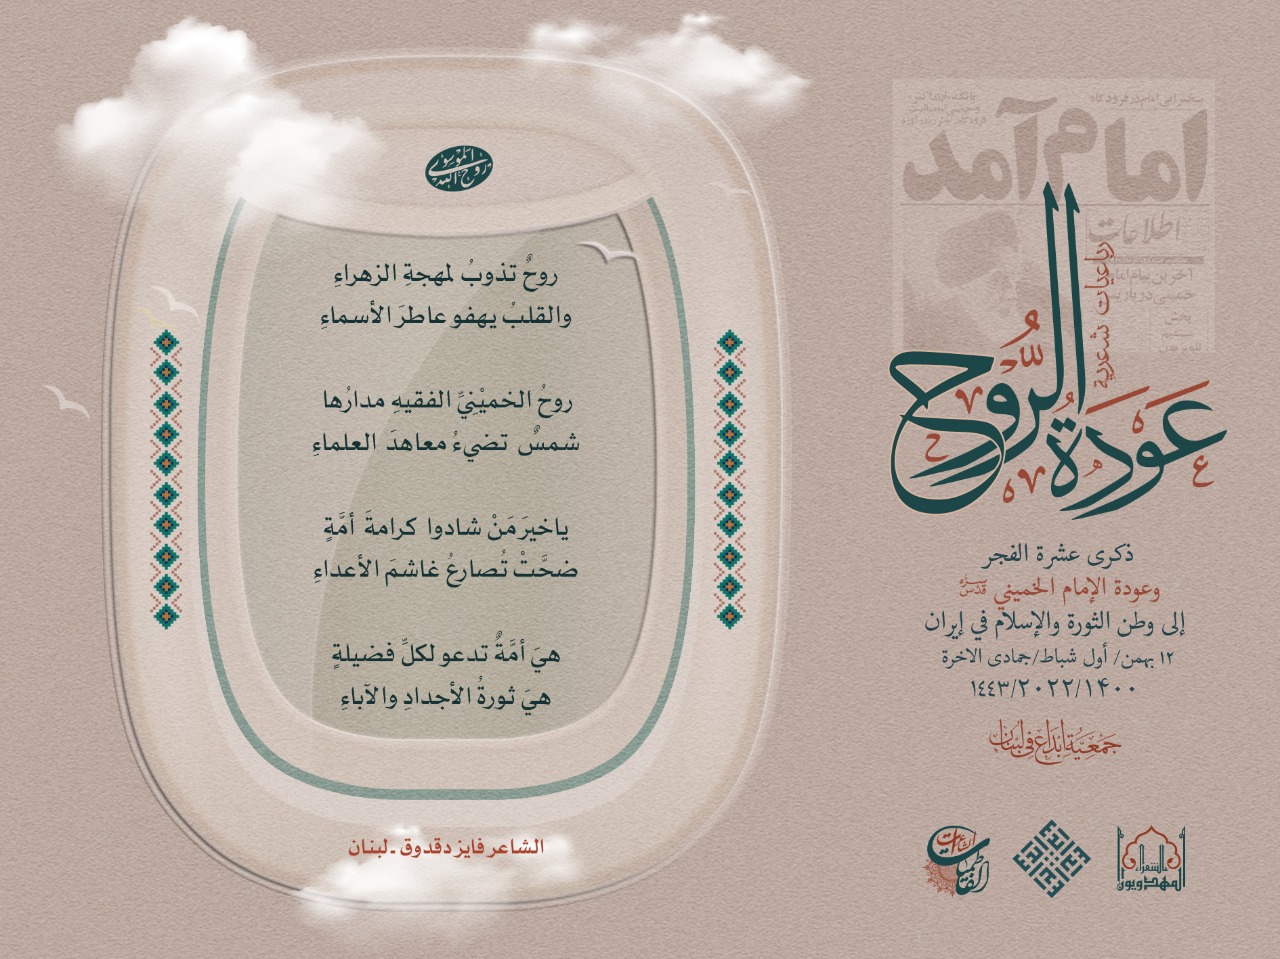 امام آمد
اطلاعات
رباعيات شعرية
عودة الرُّوح
ذكرى عشرة الفجر
وعودة الإمام الخميني قدّس سرّه
إلى وطن الثورة والإسلام في إيران
١٢ بهمن/ أول شباط/جمادى الاخرة
١٤٤٣/٢٠٢٢/١۴٠٠
جَمْعِيَّة إبْدَاع في لُبْنَان
روح الله الموسوي
روحٌ تذوبُ لمهجةِ الزهراءِ
والقلبُ يهفو عاطرَ الأسماءِ
روحُ الخمينْيِّ الفقيهِ مدارُها
شمسٌ تضيءُ معاهدَ العلماءِ
ياخيرَ مَنْ شادوا كرامةَ أمَّةٍ
ضحَّتْ تُصارعُ غاشمَ الأعداءِ
هيَ أمَّةٌ تدعو لكلِّ فضيلةٍ
هيَ ثورةُ الأجدادِ والآباءِ
الشاعر فايز دقدوق ـ لبنان
الشعراء المهدويون
الشاعرات الفاطميات